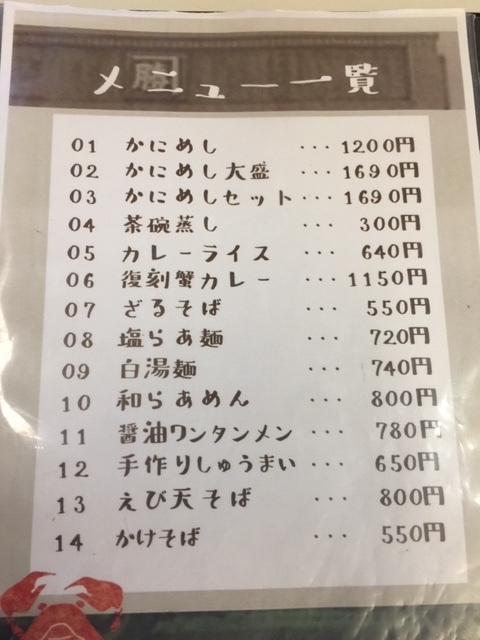 メニュー一覧
01 かにめし ･･･ 1200円
02 かにめし大盛 ･･･ 1690円
03 かにめしセット ･･･ 1690円
04 茶碗蒸し ･･･ 300円
05 カレーライス ･･･ 640円
06 復刻蟹カレー ･･･ 1150円
07 ざるそば ･･･ 550円
08 塩らぁ麺 ･･･ 720円
09 白湯麺 ･･･ 740円
10 和らぁめん ･･･ 800円
11 醤油ワンタンメン ･･･ 780円
12 手作りしゅうまい ･･･ 650円
13 えび天そば ･･･ 800円
14 かけそば ･･･ 550円